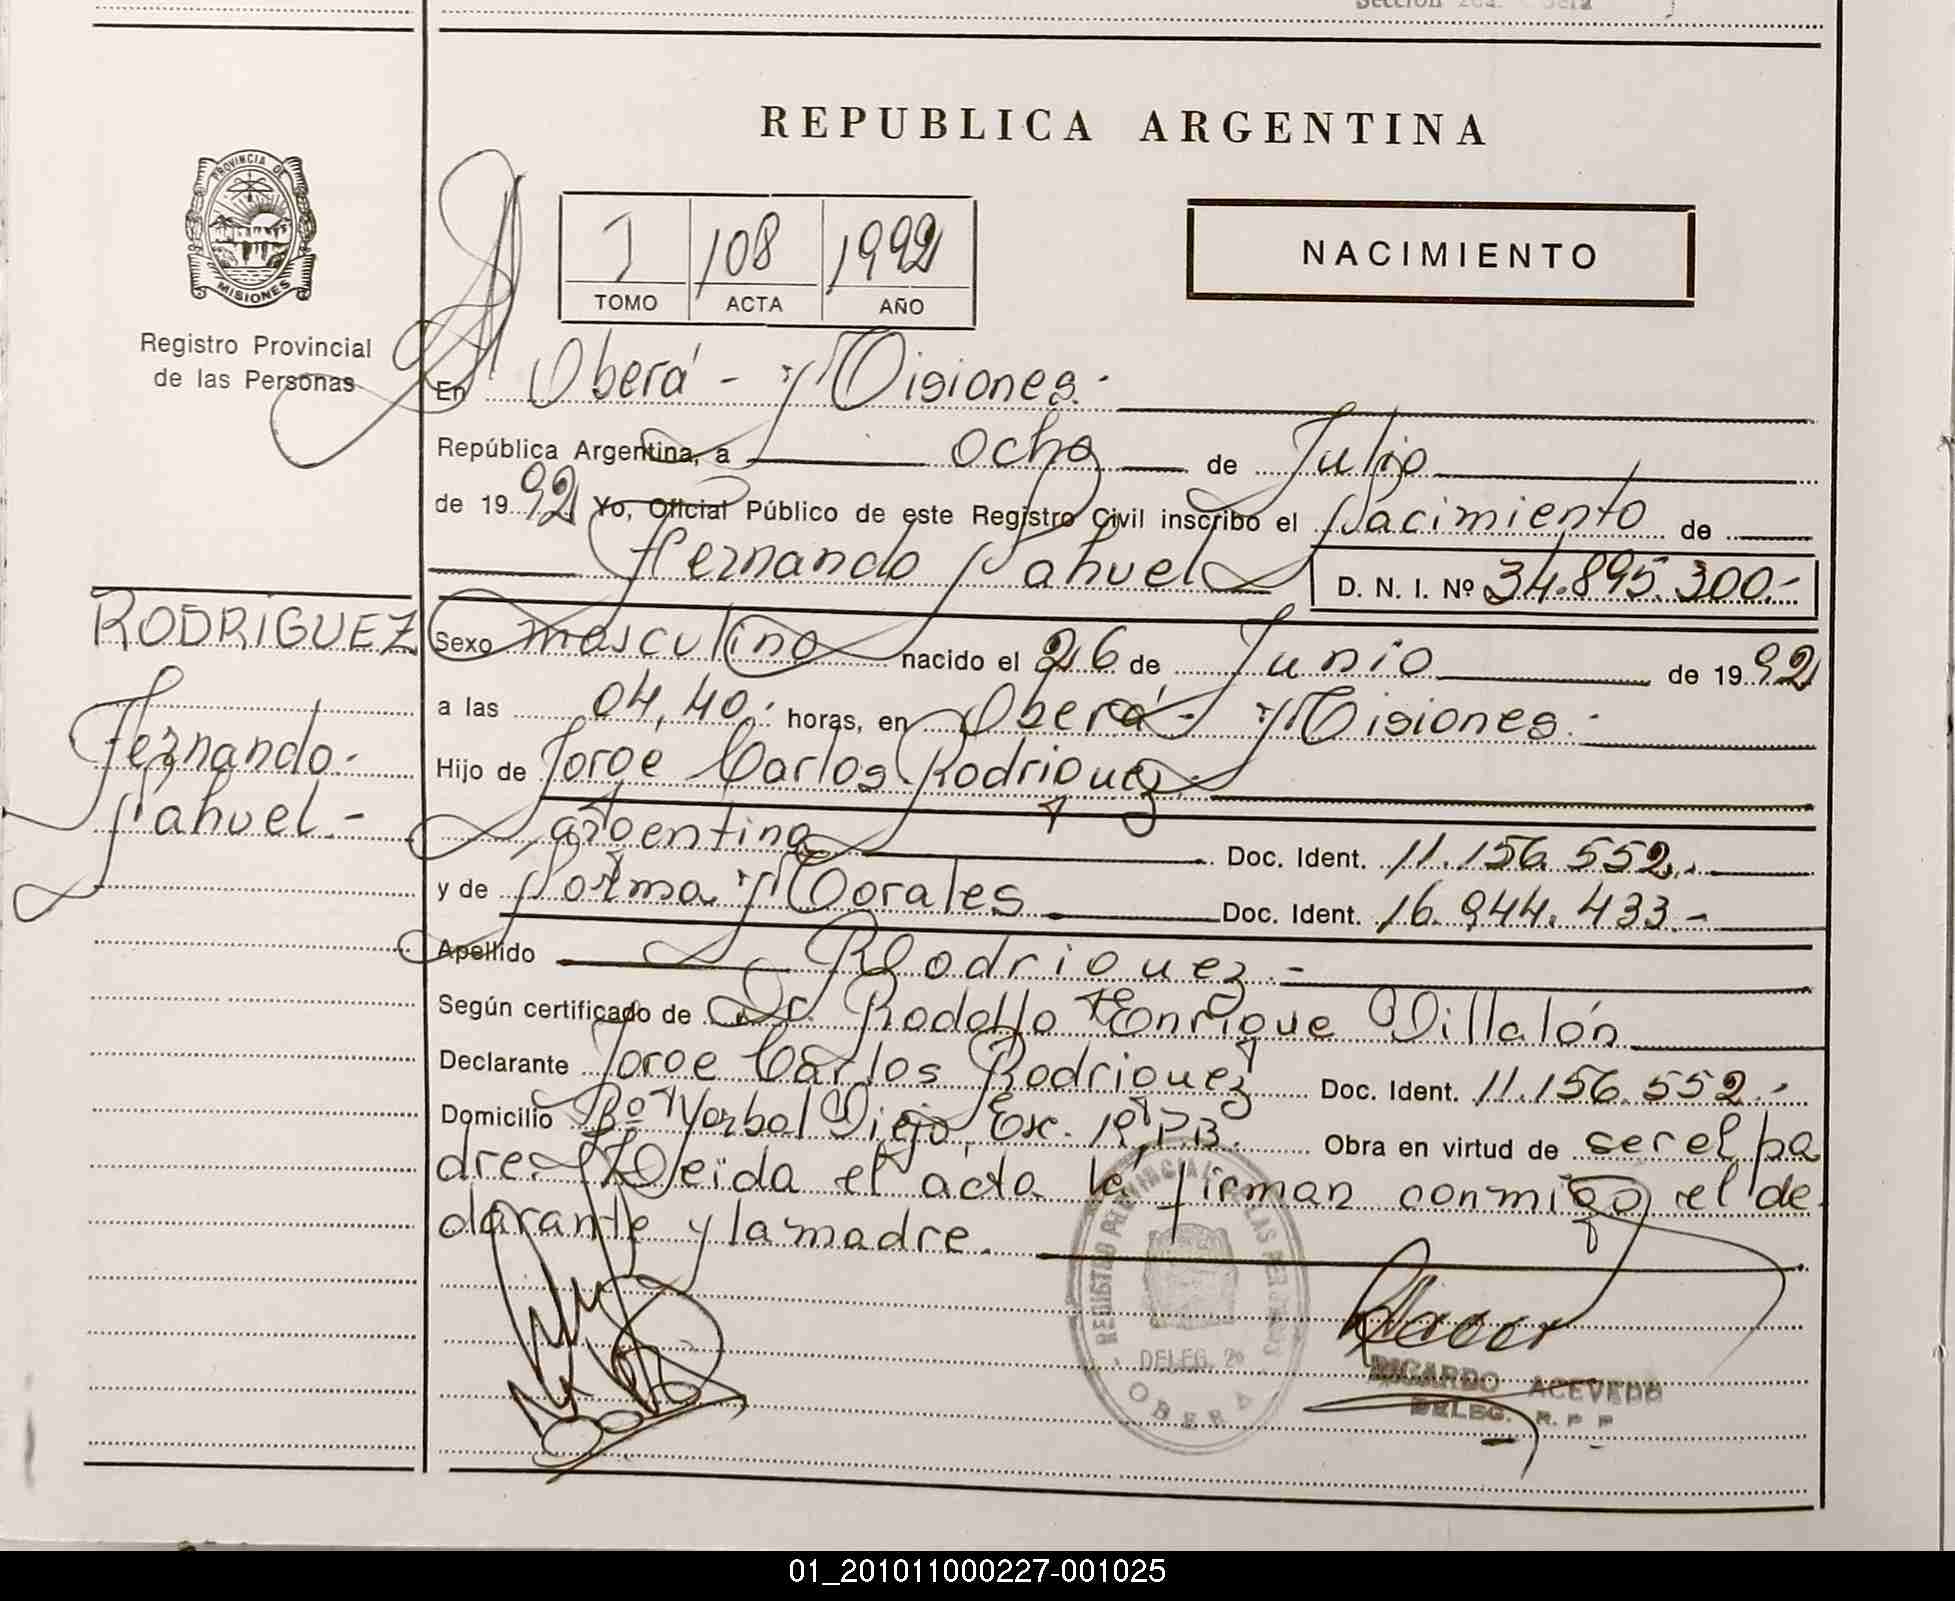 REPUBLICA ARGENTINA
PROVINCIA DE
MISIONES
Registro Provincial
de las Personas
I 108 1992
TOMO ACTA AÑO
NACIMIENTO
En Oberá - Misiones.
República Argentina, a ocho de Julio
de 1992 Yo, Oficial Público de este Registro Civil inscribo el Nacimiento de
Fernando Nahuel D. N. I. Nº 34.895.300.-
RODRIGUEZ
Fernando.-
Nahuel.-
Sexo masculino nacido el 26 de Junio de 1992
a las 04,40. horas, en Oberá - Misiones.
Hijo de Jorge Carlos Rodriguez
argentino Doc. Ident. 11.156.552.-
y de Norma Morales Doc. Ident. 16.944.433.-
Apellido Rodriguez.-
Según certificado de Dr. Rodolfo Enrique Villalón
Declarante Jorge Carlos Rodriguez Doc. Ident. 11.156.552.-
Domicilio Bº Yerbal Viejo, Esc. Obra en virtud de ser el pa
dre. Leida el acta la firman conmigo el de
clarante y la madre.
REGISTRO PROVINCIAL DE LAS PERSONAS
DELEG. 2a
OBERA
RICARDO ACEVEDO
DELEG. R. P. P.
01_201011000227-001025